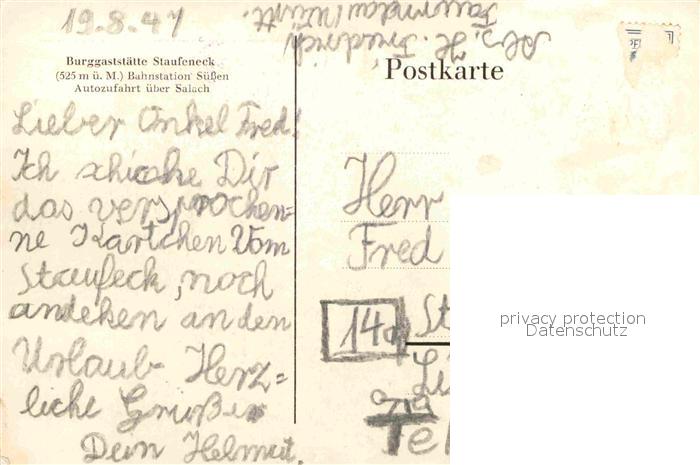 19.8.47
Abs. H. Friedrich
Faurndau/Württ.
Burggaststätte Staufeneck
(525 m ü. M.) Bahnstation Süßen
Autozufahrt über Salach
Lieber Onkel Fred!
Ich schicke Dir
das versprochen=
ne Kärtchen Vom
Staufeck, noch
andeken an den
Urlaub. Herz=
liche Grüße
Dein Helmut.
Postkarte
Herr
Fred
14a St
privacy protection
Datenschutz